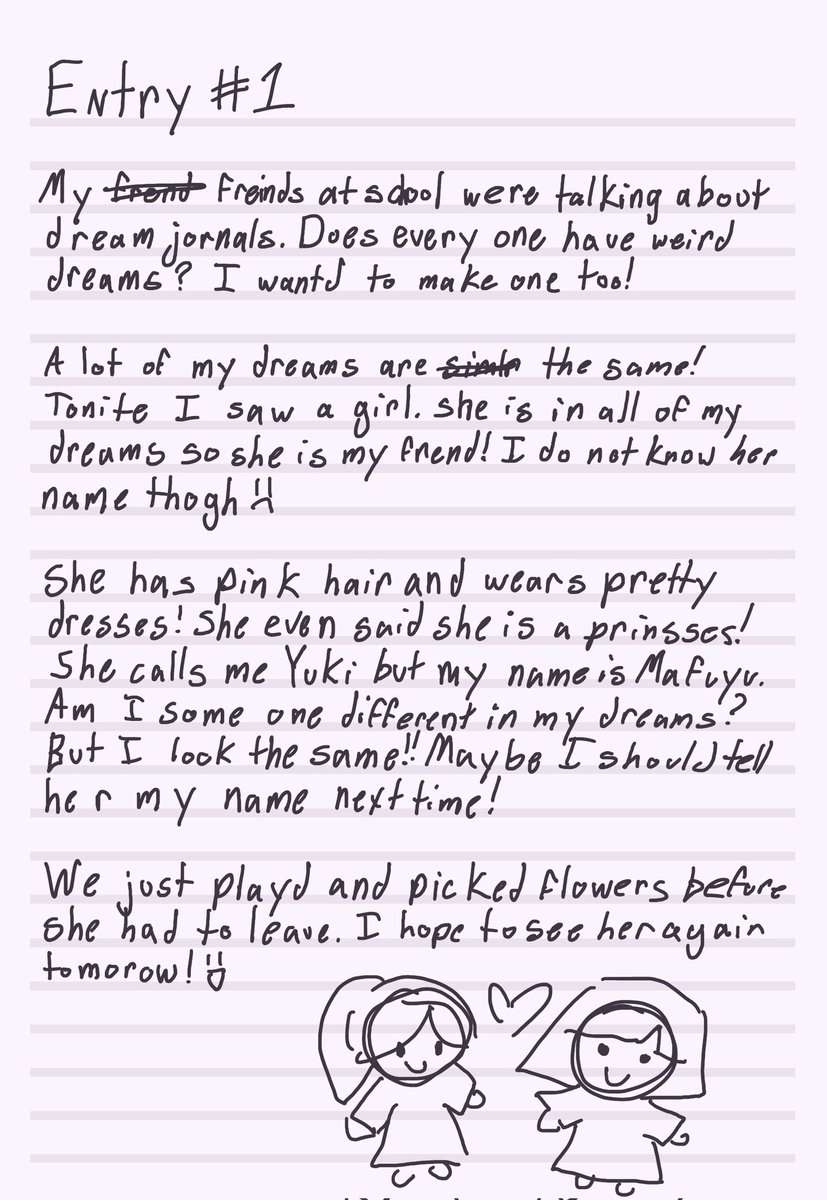 Entry #1
My frend Freinds at school were talking about
dream jornals. Does every one have weird
dreams? I wantd to make one too!
A lot of my dreams are the same!
Tonite I saw a girl. she is in all of my
dreams so she is my frend! I do not know her
name thogh :(
She has pink hair and wears pretty
dresses! She even said she is a prinsses!
She calls me Yuki but my name is Mafuyu.
Am I some one different in my dreams?
But I look the same!! Maybe I should tell
her my name next time!
We just playd and picked flowers before
she had to leave. I hope to see her again
tomorow! :D